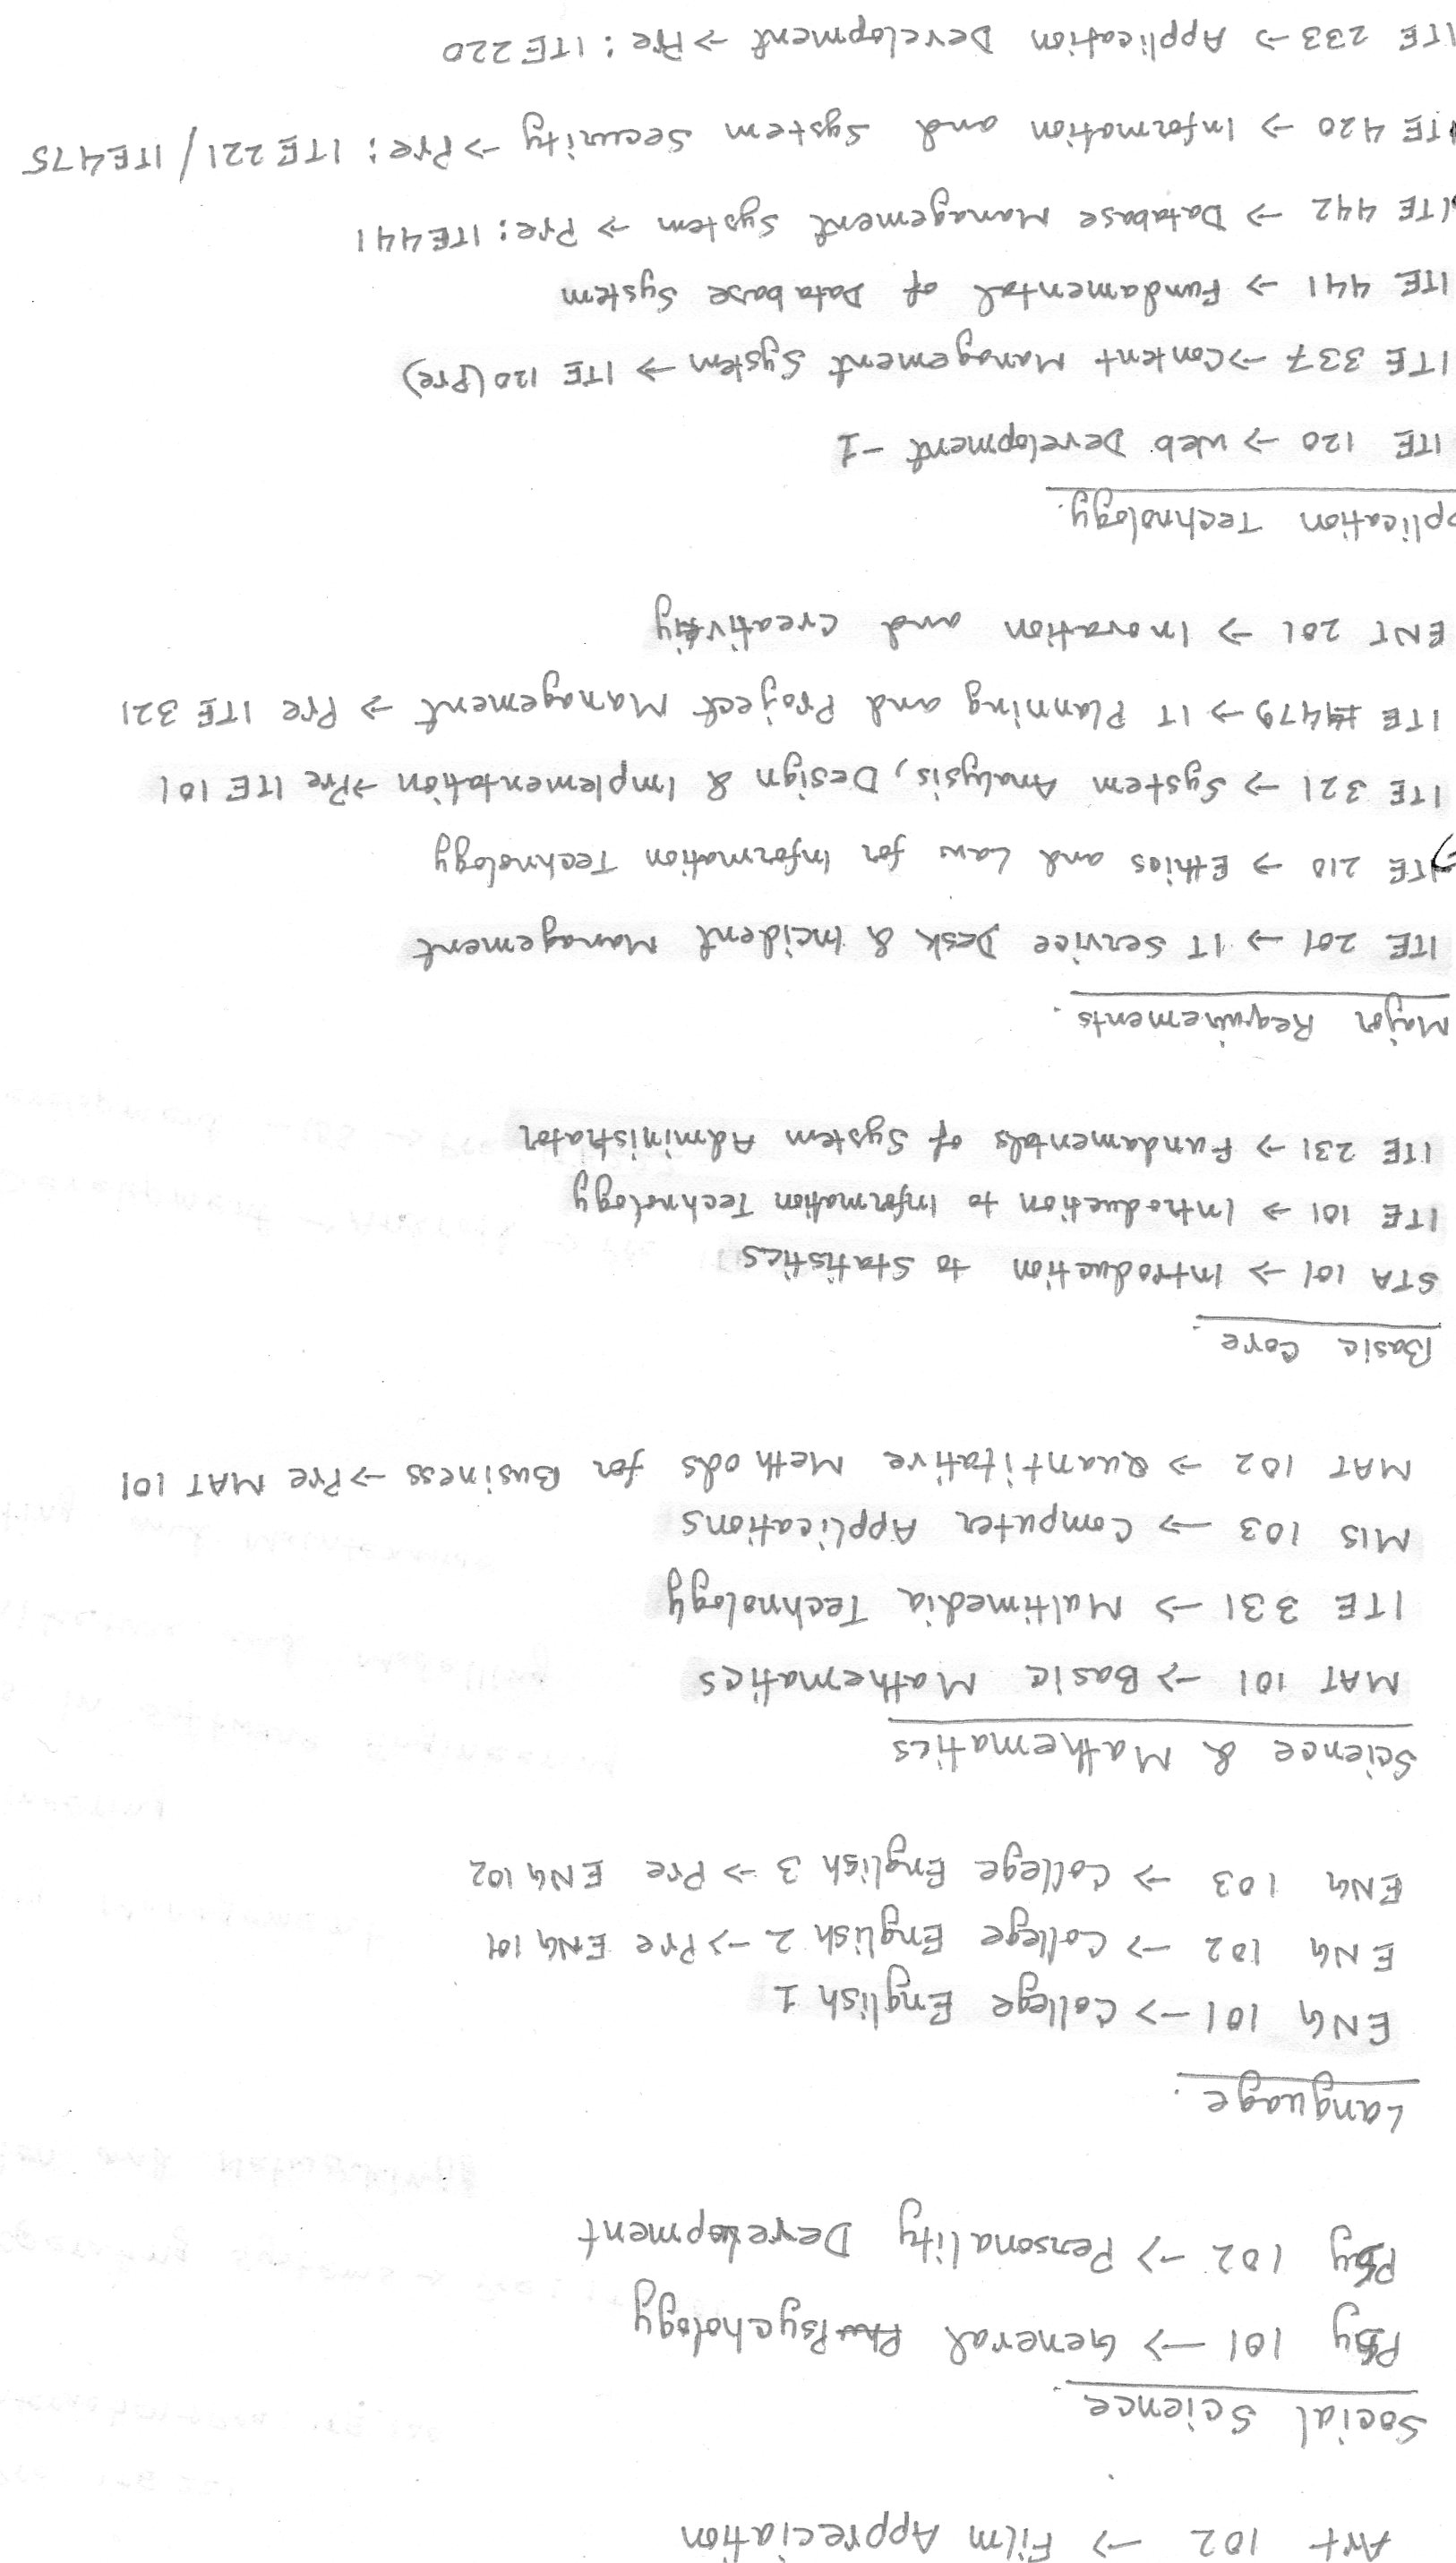 Art 102 -> Film Appreciation
Social Science.
Psy 101 -> General Psychology
Psy 102 -> Personality Development
Language.
ENG 101 -> College English 1
ENG 102 -> College English 2 -> Pre ENG 101
ENG 103 -> College English 3 -> Pre ENG 102
Science & Mathematics
MAT 101 -> Basic Mathematics
ITE 331 -> Multimedia Technology
MIS 103 -> Computer Applications
MAT 102 -> Quantitative Methods for Business -> Pre MAT 101
Basic Core.
STA 101 -> Introduction to Statistics
ITE 101 -> Introduction to Information Technology
ITE 231 -> Fundamentals of System Administrator
Major Requirements.
ITE 201 -> IT Service Desk & Incident Management
ITE 210 -> Ethics and Law for Information Technology
ITE 321 -> System Analysis, Design & Implementation -> Pre ITE 101
ITE 479 -> IT Planning and Project Management -> Pre ITE 321
ENT 201 -> Inovation and Creativity
pplication Technology.
ITE 120 -> Web Development -1
ITE 337 -> Content Management System -> ITE 120 (Pre)
ITE 441 -> Fundamental of Database System
ITE 442 -> Database Management System -> Pre: ITE 441
ITE 420 -> Information and System Security -> Pre: ITE 221 / ITE 475
ITE 233 -> Application Development -> Pre: ITE 220